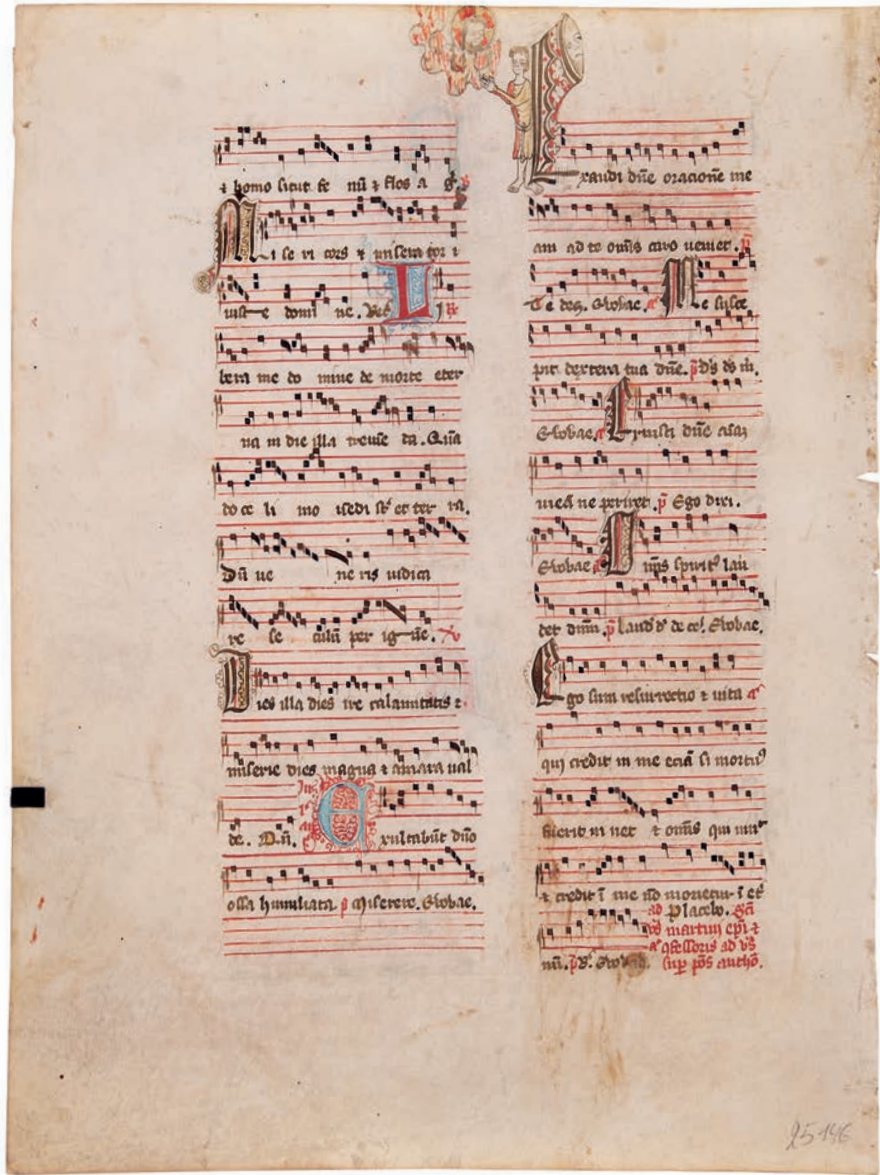 ⁊ homo sicut fe nū ⁊ flos a g
Mi se ri cors ⁊ misera tor
domi ne. L I
bera me do mine de morte eter
na in die illa treme da. Qūa
do ce li mo uēdi st̄ et ter ra.
Dū ue ne ris iudica
re se culū per ig ne.
Dies illa dies ire calamitatis ⁊
miserie dies magna ⁊ amara ual
de. Dū. Exultabūt dn̄o
ossa humiliata p̄ Miserere. Evovae.
Exaudi dn̄e oracionē me
am ad te om̄is caro ueniet. p̄
Te dec̄. Evovae. Me susce
pit dextera tua dn̄e. p̄ d̄s d̄s m̄.
Evovae. Eruisti dn̄e aīaʒ
meā ne periret. p̄ Ego dixi.
Evovae. Om̄is spirit⁹ lau
det dn̄m. p̄ laud̄ d̄ de cel̄. Evovae.
Ego sum resurrectio ⁊ uita
qui credit in me eciā si mortu⁹
fuerit uiuet ⁊ om̄is qui uiuit
⁊ credit ī me nō morietur ī et̄
ad Placebo. Sc̄i
martini ep̄i ⁊
ꝯfessoris ad v̄s
nū. p̄ B̄. Evovae. sup̄ p̄s antho.
25 146